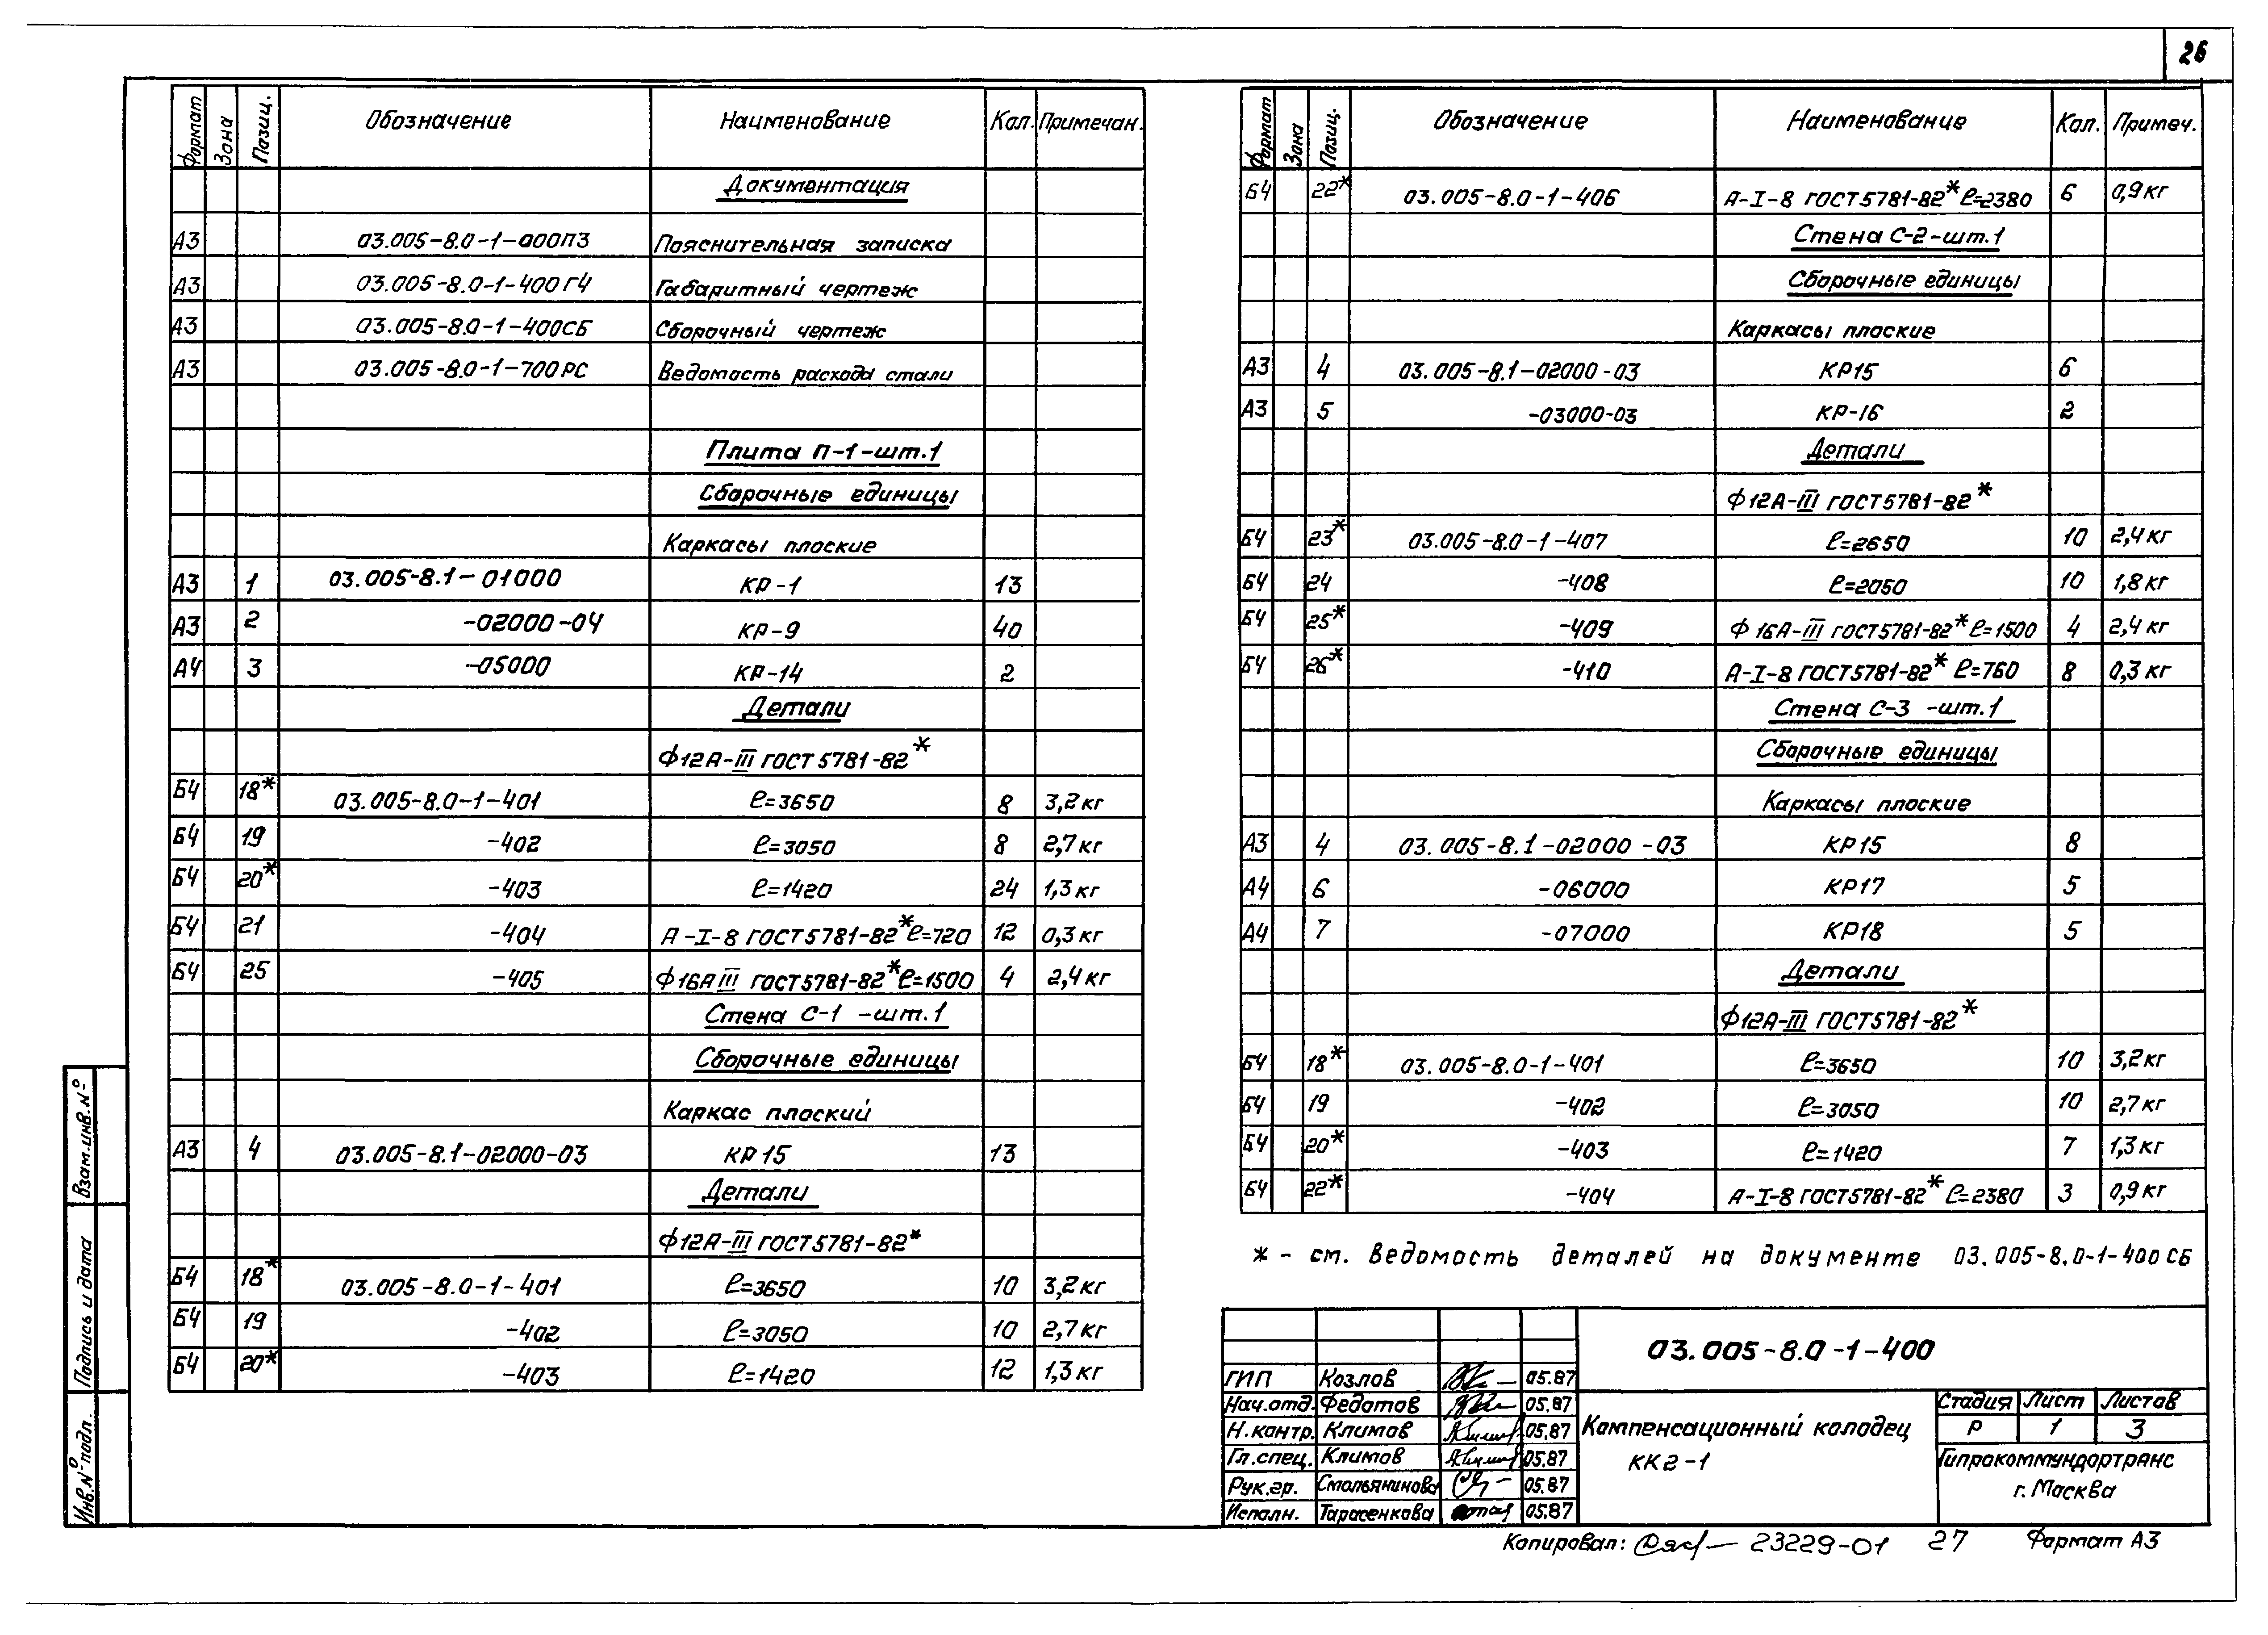 26
Формат Зона Позиц. Обозначение Наименование Кол. Примечан.
Документация
А3 03.005-8.0-1-000ПЗ Пояснительная записка
А3 03.005-8.0-1-400ГЧ Габаритный чертеж
А3 03.005-8.0-1-400СБ Сборочный чертеж
А3 03.005-8.0-1-700РС Ведомость расхода стали
Плита П-1-шт.1
Сборочные единицы
Каркасы плоские
А3 1 03.005-8.1-01000 КР-1 13
А3 2 -02000-04 КР-9 40
А4 3 -05000 КР-14 2
Детали
Ф12А-III ГОСТ 5781-82*
БЧ 18* 03.005-8.0-1-401 ℓ=3650 8 3,2кг
БЧ 19 -402 ℓ=3050 8 2,7кг
БЧ 20* -403 ℓ=1420 24 1,3кг
БЧ 21 -404 А-I-8 ГОСТ 5781-82* ℓ=720 12 0,3кг
БЧ 25 -405 Ф16А III ГОСТ 5781-82* ℓ=1500 4 2,4кг
Стена С-1 -шт.1
Сборочные единицы
Каркас плоский
А3 4 03.005-8.1-02000-03 КР15 13
Детали
Ф12А-III ГОСТ 5781-82*
БЧ 18* 03.005-8.0-1-401 ℓ=3650 10 3,2кг
БЧ 19 -402 ℓ=3050 10 2,7кг
БЧ 20* -403 ℓ=1420 12 1,3кг
Формат Зона Позиц. Обозначение Наименование Кол. Примеч.
БЧ 22* 03.005-8.0-1-406 А-I-8 ГОСТ 5781-82* ℓ=2380 6 0,9кг
Стена С-2-шт.1
Сборочные единицы
Каркасы плоские
А3 4 03.005-8.1-02000-03 КР15 6
А3 5 -03000-03 КР-16 2
Детали
Ф12А-III ГОСТ 5781-82*
БЧ 23* 03.005-8.0-1-407 ℓ=2650 10 2,4кг
БЧ 24 -408 ℓ=2050 10 1,8кг
БЧ 25* -409 Ф16А-III ГОСТ 5781-82* ℓ=1500 4 2,4кг
БЧ 26* -410 А-I-8 ГОСТ 5781-82* ℓ=760 8 0,3кг
Стена С-3 -шт.1
Сборочные единицы
Каркасы плоские
А3 4 03.005-8.1-02000-03 КР15 8
А4 6 -06000 КР17 5
А4 7 -07000 КР18 5
Детали
Ф12А-III ГОСТ 5781-82*
БЧ 18* 03.005-8.0-1-401 ℓ=3650 10 3,2кг
БЧ 19 -402 ℓ=3050 10 2,7кг
БЧ 20* -403 ℓ=1420 7 1,3кг
БЧ 22* -404 А-I-8 ГОСТ 5781-82* ℓ=2380 3 0,9кг
* - см. Ведомость деталей на документе 03.005-8.0-1-400СБ
03.005-8.0-1-400
ГИП Козлов 05.87
Нач.отд. Федотов 05.87
Н.контр. Климов 05.87
Гл.спец. Климов 05.87
Рук.гр. Смольянинова 05.87
Исполн. Тарасенкова 05.87
Компенсационный колодец
КК2-1
Стадия Лист Листов
Р 1 3
Гипрокоммундортранс
г. Москва
Взам.инв.№
Подпись и дата
Инв.№ подл.
Копировал: 23229-01 27 Формат А3